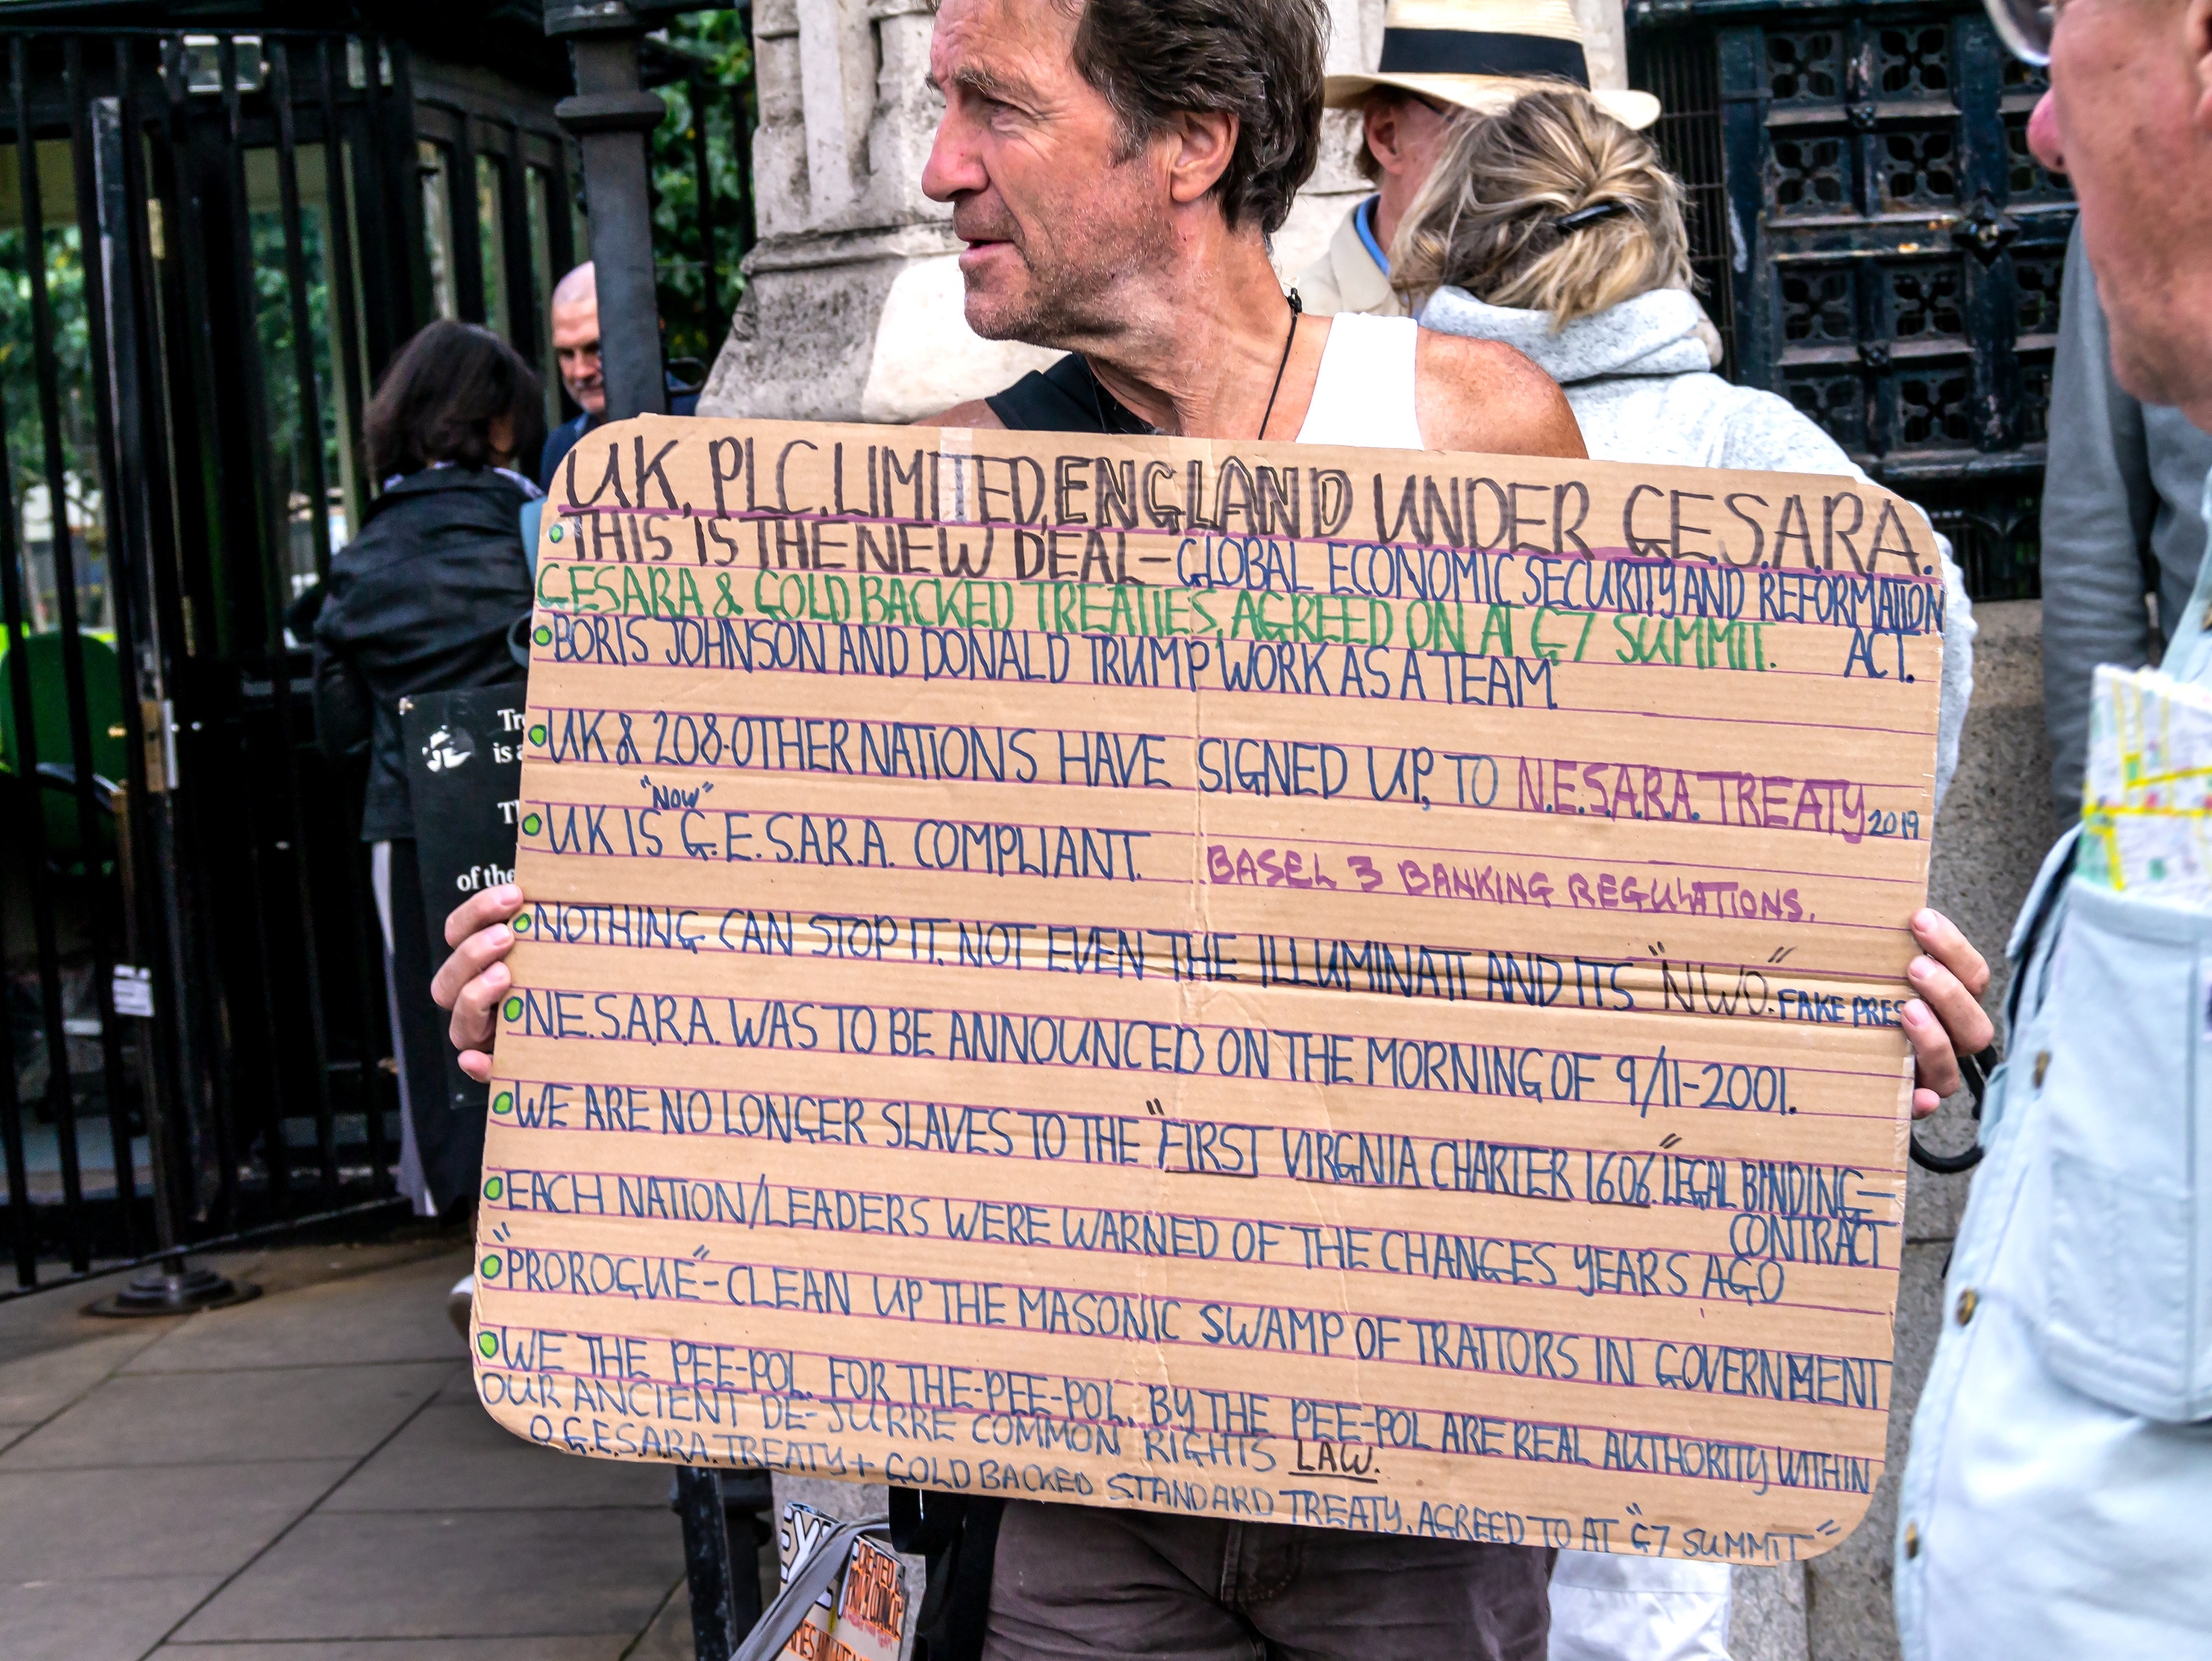 UK. PLC. LIMITED. ENGLAND UNDER G.E.S.A.R.A.
THIS IS THE NEW DEAL - GLOBAL ECONOMIC SECURITY AND REFORMATION
ACT.
GESARA & GOLD BACKED TREATIES, AGREED ON AT G7 SUMMIT.
BORIS JOHNSON AND DONALD TRUMP WORK AS A TEAM
UK & 208-OTHER NATIONS HAVE SIGNED UP, TO N.E.S.A.R.A. TREATY 2019
"NOW"
UK IS G.E.S.A.R.A. COMPLIANT. BASEL 3 BANKING REGULATIONS.
NOTHING CAN STOP IT. NOT EVEN THE ILLUMINATI AND ITS "NWO". FAKE PRES
N.E.S.A.R.A. WAS TO BE ANNOUNCED ON THE MORNING OF 9/11-2001.
WE ARE NO LONGER SLAVES TO THE "FIRST VIRGNIA CHARTER 1606." LEGAL BINDING-
CONTRACT
EACH NATION/LEADERS WERE WARNED OF THE CHANGES YEARS AGO
"PROROGUE" - CLEAN UP THE MASONIC SWAMP OF TRAITORS IN GOVERNMENT
WE THE PEE-POL. FOR THE-PEE-POL. BY THE PEE-POL ARE REAL AUTHORITY WITHIN
OUR ANCIENT DE-JURRE COMMON RIGHTS LAW.
G.E.S.A.R.A. TREATY + GOLD BACKED STANDARD TREATY. AGREED TO AT "G7 SUMMIT"
is a
of the